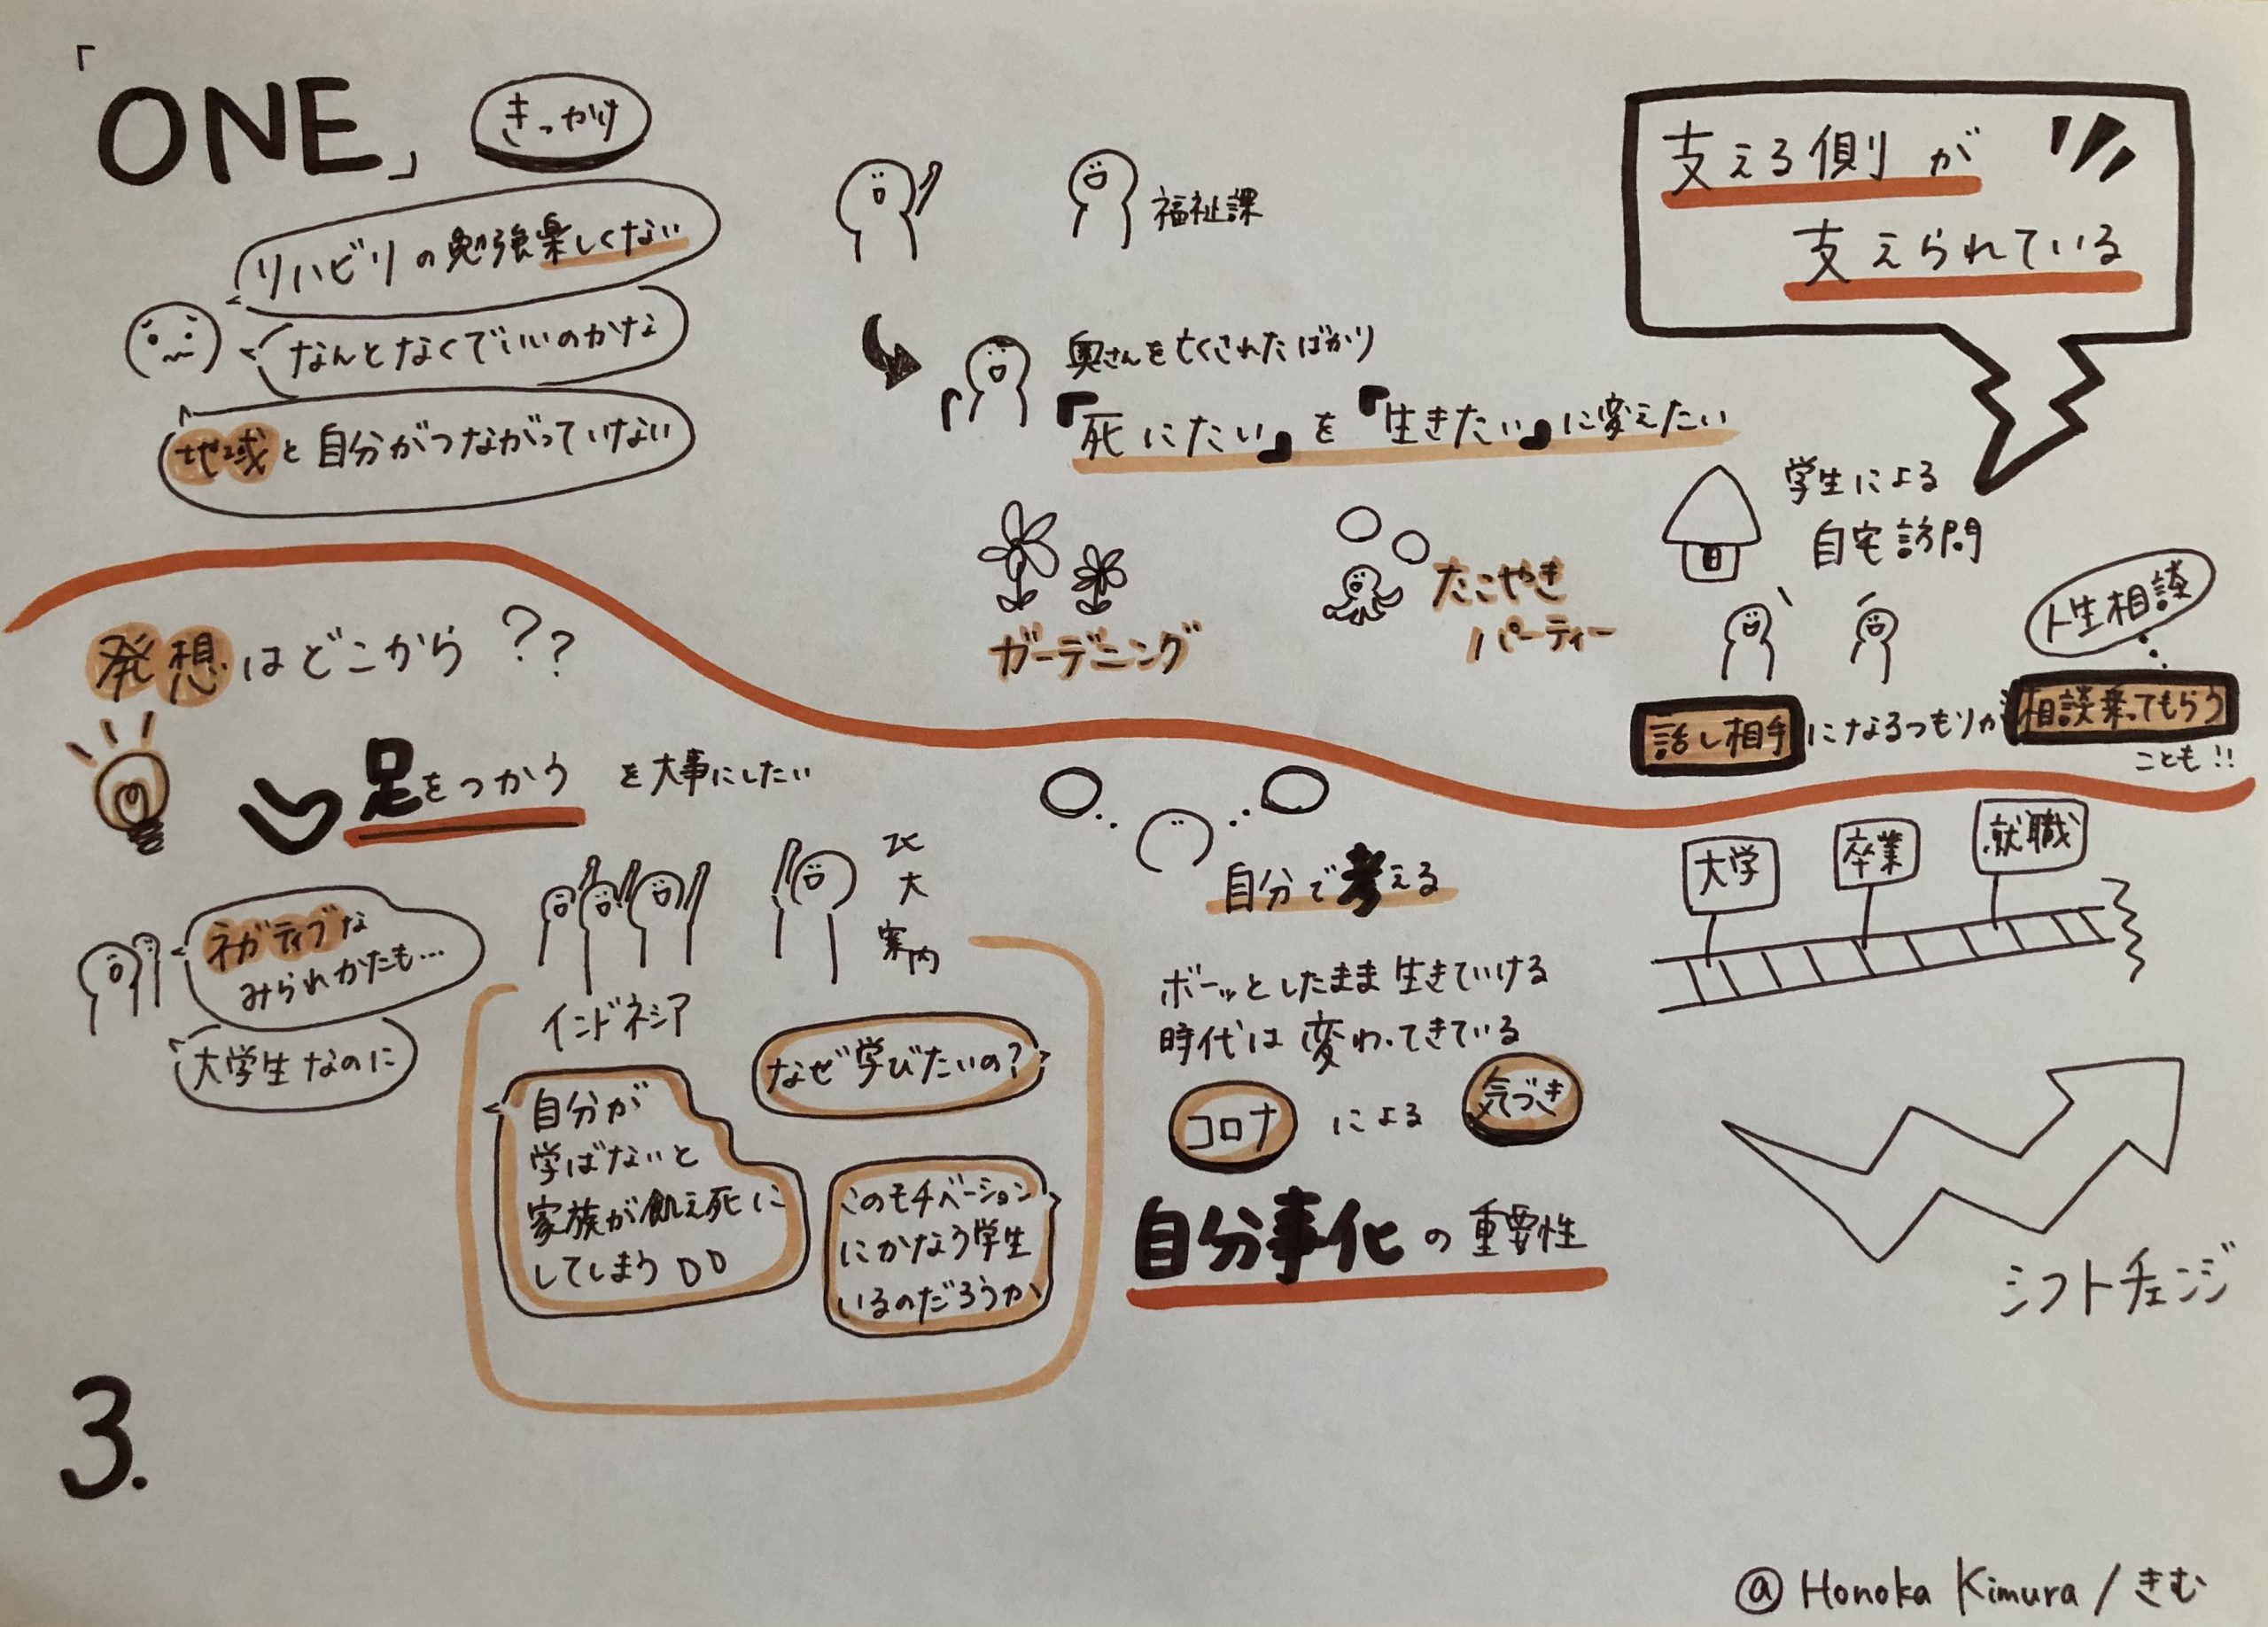 「ONE」
きっかけ
リハビリの勉強楽しくない
なんとなくでいいのかな
地域と自分がつながっていない
福祉課
奥さんを亡くされたばかり
『死にたい』を『生きたい』に変えたい
ガーデニング
たこやき
パーティー
支える側が
支えられている
学生による
自宅訪問
人生相談
話し相手になるつもりが相談乗ってもらう
ことも!!
発想はどこから??
足をつかう を大事にしたい
ネガティブな
みられかたも…
大学生なのに
インドネシア
北
大
案内
なぜ学びたいの?
自分が
学ばないと
家族が飢え死に
してしまう
このモチベーション
にかなう学生
いるのだろうか
自分で考える
ボーッとしたまま生きていける
時代は変わってきている
コロナ による 気づき
自分事化の重要性
大学
卒業
就職
シフトチェンジ
3.
@ Honoka Kimura / きむ